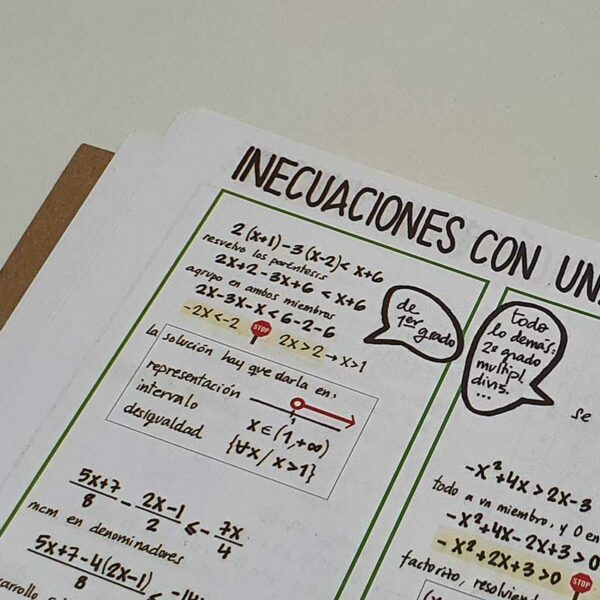 INECUACIONES CON UN
2(x+1)-3(x-2)< x+6
resuelvo los paréntesis
2x+2-3x+6 < x+6
agrupo en ambos miembros
2x-3x-x<6-2-6
-2x<-2 STOP 2x>2→x>1
de
1er grado
la solución hay que darla en:
representación
intervalo
desigualdad
1
x∈(1,+∞)
{∀x/x>1}
5x+7/8 - 2x-1/2 ≤ - 7x/4
mcm en denominadores
5x+7-4(2x-1)/8 ≤ -14
todo
lo demás:
2º grado
multipl.
divis.
...
se
-x²+4x>2x-3
todo a un miembro, y 0 en
-x²+4x-2x+3>0
-x²+2x+3>0 STOP
factorizo, resolviend